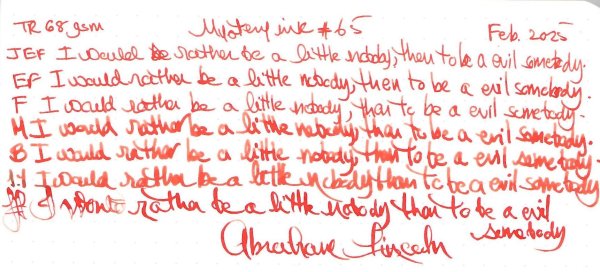 TR 68 gsm Mystery ink #65 Feb. 2025
JEF I would be rather be a little nobody, then to be a evil somebody.
EF I would rather be a little nobody, then to be a evil somebody.
F I would rather be a little nobody, than to be a evil somebody.
M I would rather be a little nobody, than to be a evil somebody.
B I would rather be a little nobody, than to be a evil somebody.
1.1 I would rather be a little nobody than to be a evil somebody
I rather be a little nobody than to be a evil
somebody
Abraham Lincoln